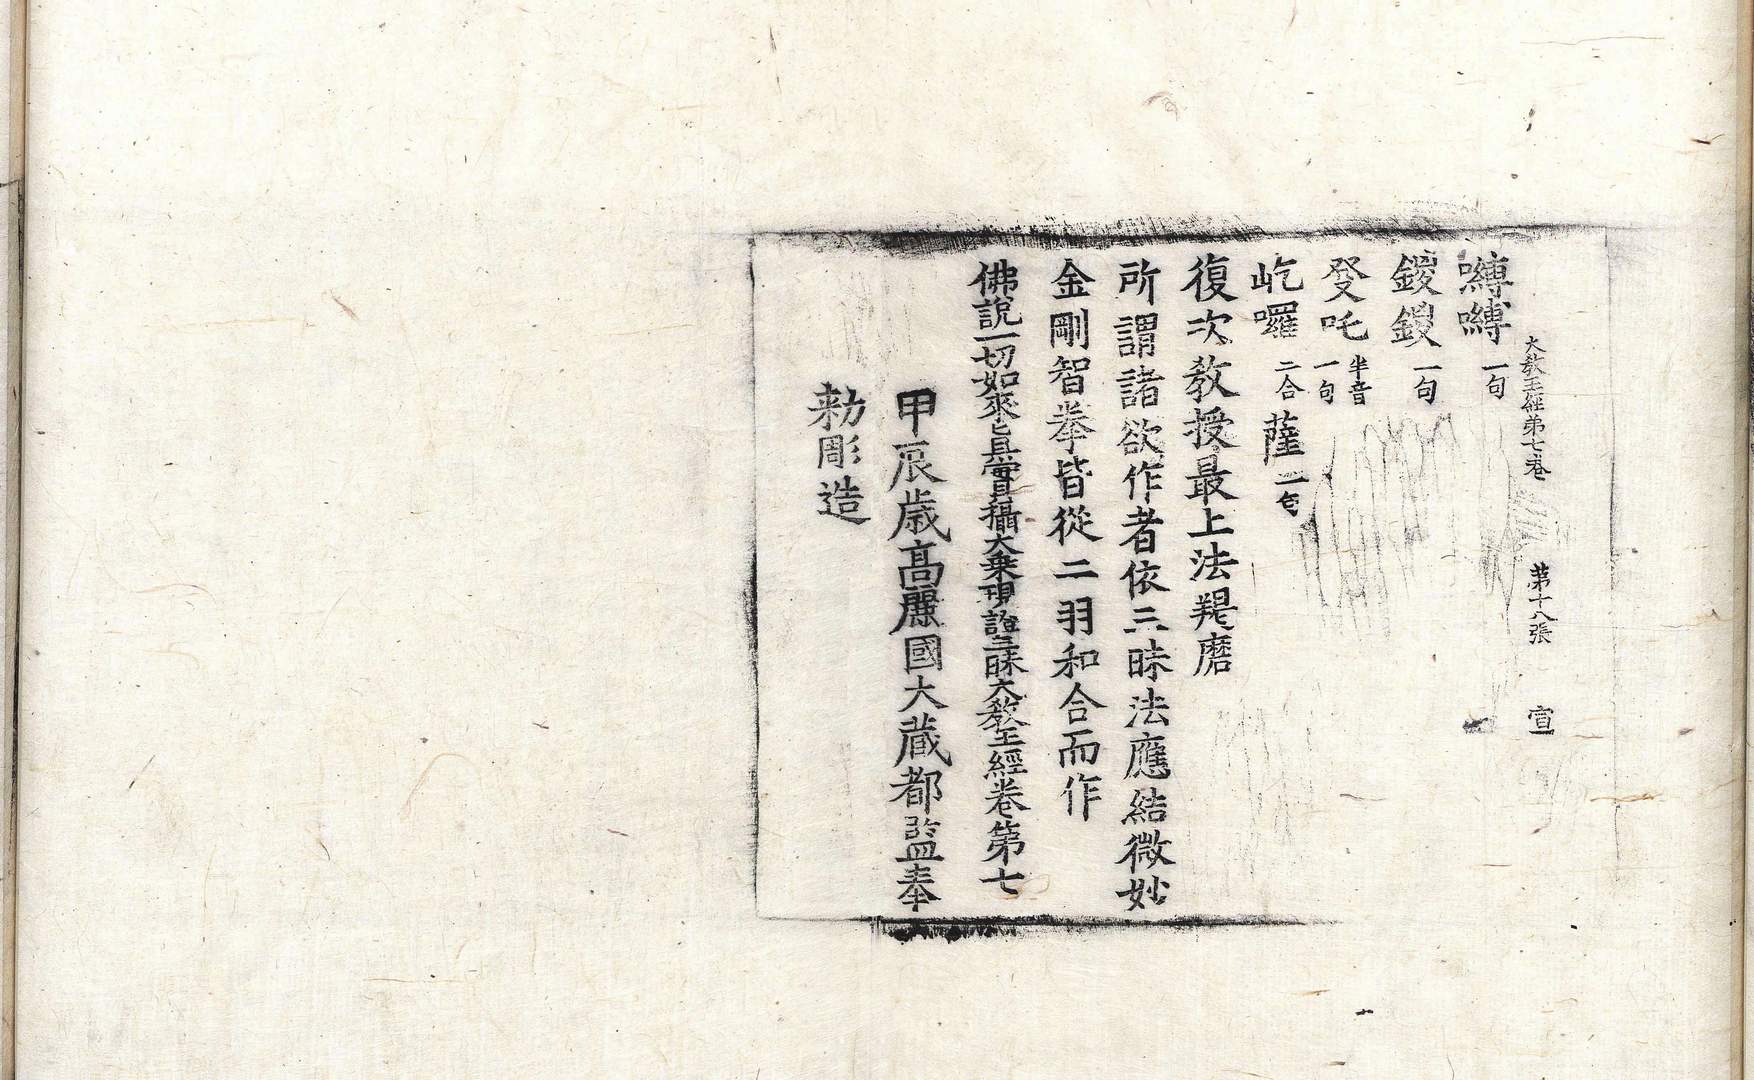 大教王經第七卷 第十八張 宣
嚩嚩一句
鍐鍐一句
發吒半音一句
屹囉二合薩一句
復次教授最上法羯磨
所謂諸欲作者依三昧法應結微妙
金剛智拳皆從二羽和合而作
佛說一切如來眞實攝大乘現證三昧大教王經卷第七
甲辰歲高麗國大藏都監奉
勅彫造